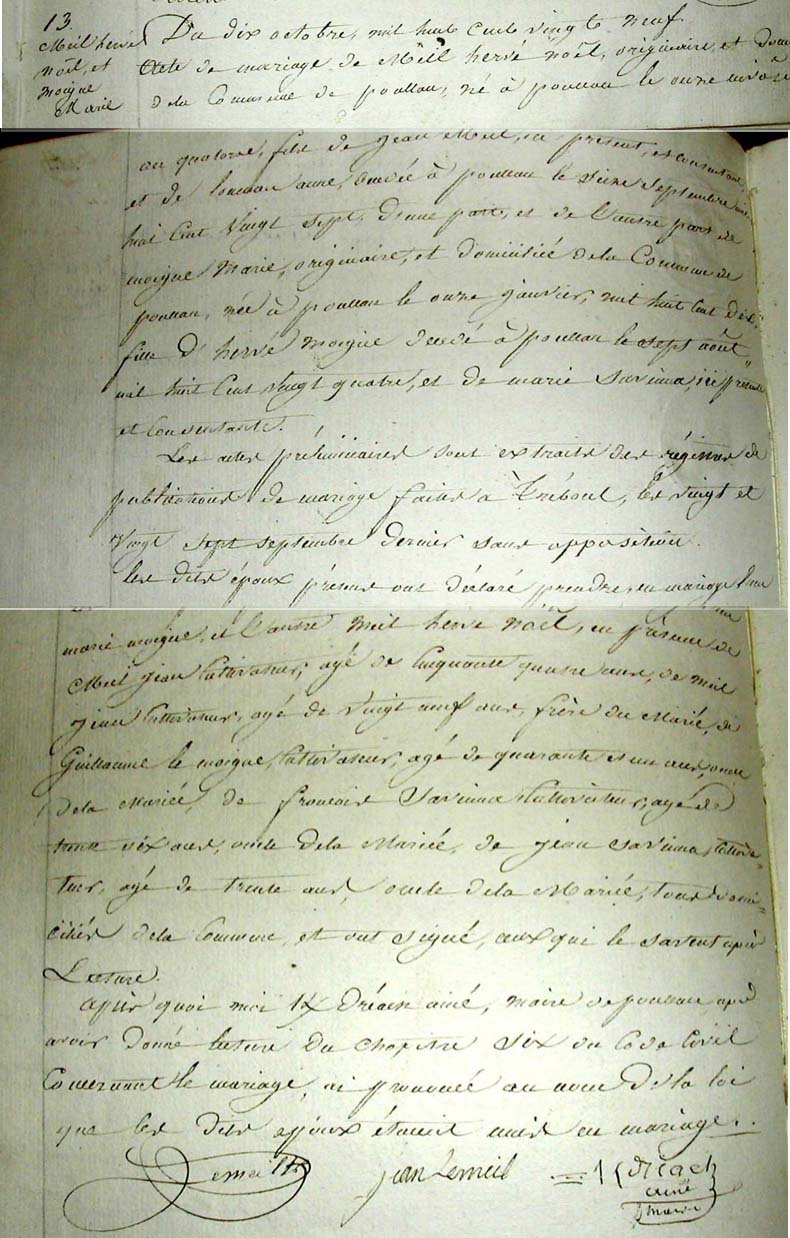 13.
Meil hervé
noël, et
moigne
Marie
Du dix octobre, mil huit cent vingt neuf.
Acte de mariage de Meil hervé noël, originaire, et domi
dela Commune de poullan, né à poullan le onze nivôse
an quatorze, fils de jean Meil, ici présent, et consentant,
et de anne, décédée à poullan le seize Septembre mil
huit Cent Vingt sept, d'une part, et de l'autre part de
moigne Marie, originaire, et domiciliée dela Commune de
poullan, née à poullan le onze janvier, mil huit cent dix,
fille d'hervé moigne décédé à poullan le sept août
mil huit Cent vingt quatre, et de marie Savina, ici présente
et Consentante.
Les actes préliminaires sont extraits des régistres de
publications de mariage faites à Tréboul, les vingt et
Vingt sept septembre dernier sans opposition.
les dits époux présens ont déclaré prendre en mariage l'un
marie moigne, et l'autre Meil hervé Noël, en présence de
Meil jean Cultivateur, agé de Cinquante quatre ans, de Meil
jean Cultivateur, agé de Vingt neuf ans, frère du Marié, de
Guillaume le moigne, Cultivateur, agé de quarante et un ans, oncle
dela Mariée, de françois Savina Cultivateur, agé de
trente six ans, oncle dela Mariée, de jean Savina, Cultiva-
teur, agé de trente ans, oncle dela Mariée, tous domi-
ciliés dela Commune, et ont signé, ceux qui le savent après
Lecture.
après quoi moi ainé, maire de poullan, après
avoir donné lecture du Chapitre Six du Code Civil
Concernant le mariage, ai prononcé au nom de la loi
que les dits époux étaient unis en mariage..
jean Lemeil
ainé
maire